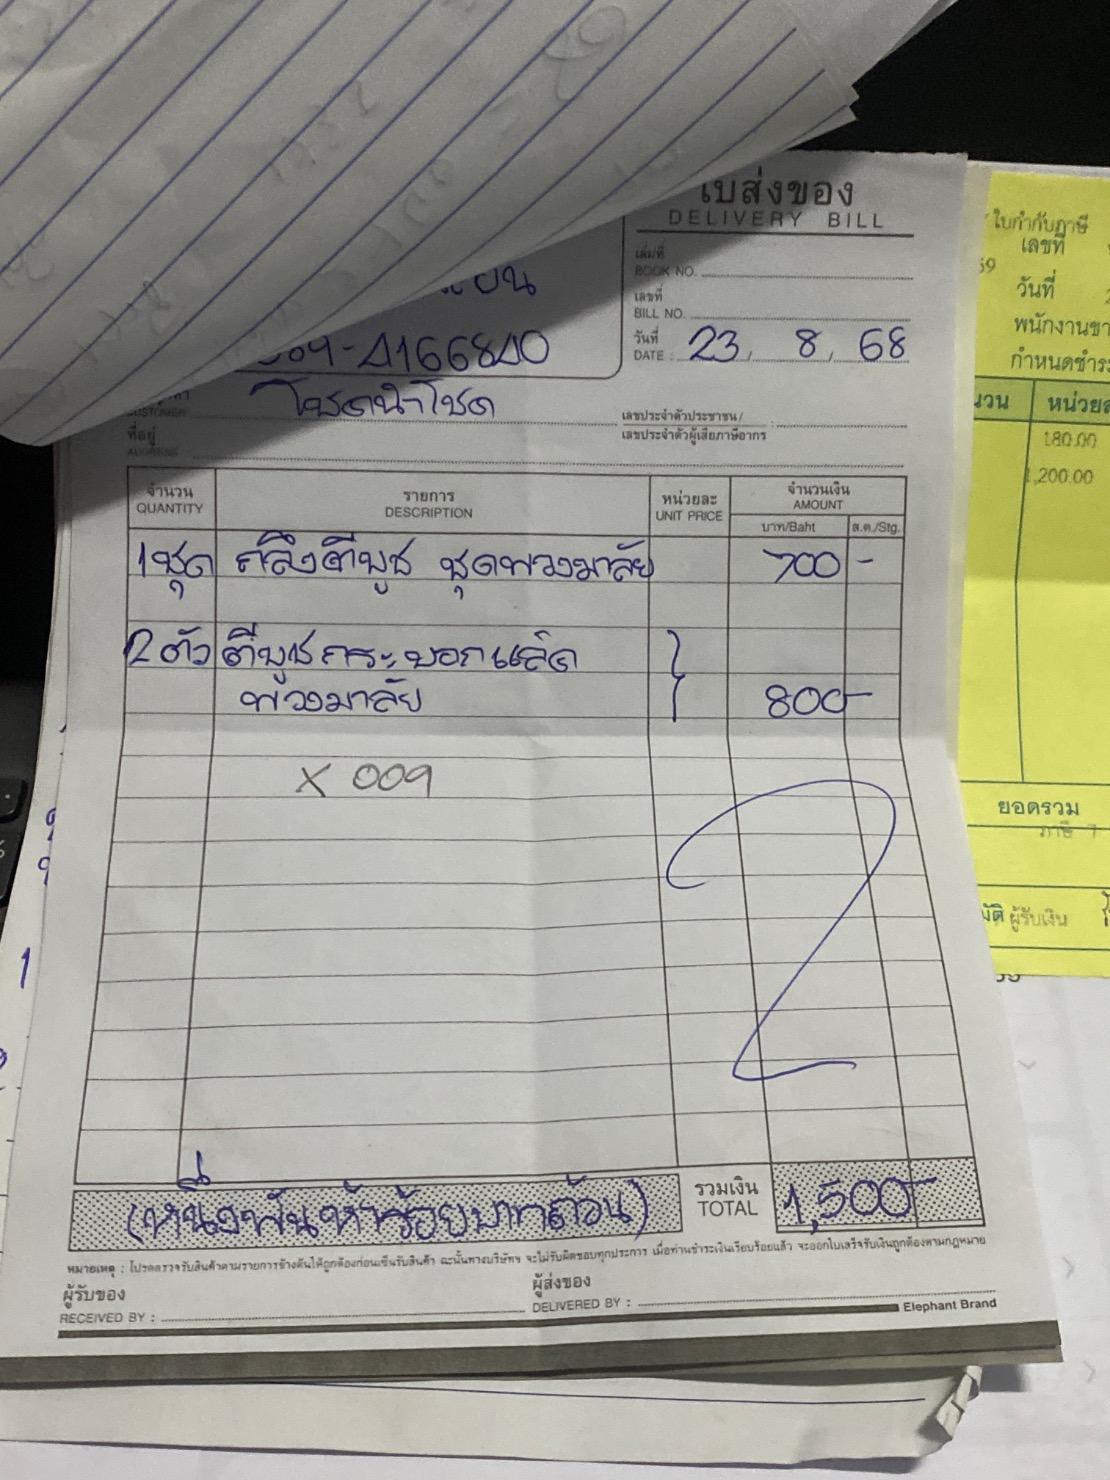 ใบส่งของ
DELIVERY BILL
เล่มที่
BOOK NO.
เลขที่
BILL NO.
วันที่
DATE : 23, 8, 68
089-4166840
โชคนำโชค
CUSTOMER
ที่อยู่
ADDRESS
เลขประจำตัวประชาชน/
เลขประจำตัวผู้เสียภาษีอากร :
จำนวน รายการ หน่วยละ จำนวนเงิน
QUANTITY DESCRIPTION UNIT PRICE AMOUNT
บาท/Baht ส.ต./Stg.
1ชุด กลึงตีบูช ชุดพวงมาลัย 700 -
2 ตัว ตีบูชกระบอกแล็ค
พวงมาลัย 800-
X 009
(หนึ่งพันห้าร้อยบาทถ้วน) รวมเงิน 1,500-
TOTAL
หมายเหตุ : โปรดตรวจรับสินค้าตามรายการข้างต้นให้ถูกต้องก่อนเซ็นรับสินค้า ฉะนั้นทางบริษัทฯ จะไม่รับผิดชอบทุกประการ เมื่อท่านชำระเงินเรียบร้อยแล้ว จะออกใบเสร็จรับเงินถูกต้องตามกฎหมาย
ผู้รับของ ผู้ส่งของ
RECEIVED BY : DELIVERED BY :
Elephant Brand
ใบกำกับภาษี
เลขที่
59
วันที่
พนักงานขา
กำหนดชำระ
นวน หน่วยล
180.00
1,200.00
ยอดรวม
ภาษี 7
ผู้รับเงิน